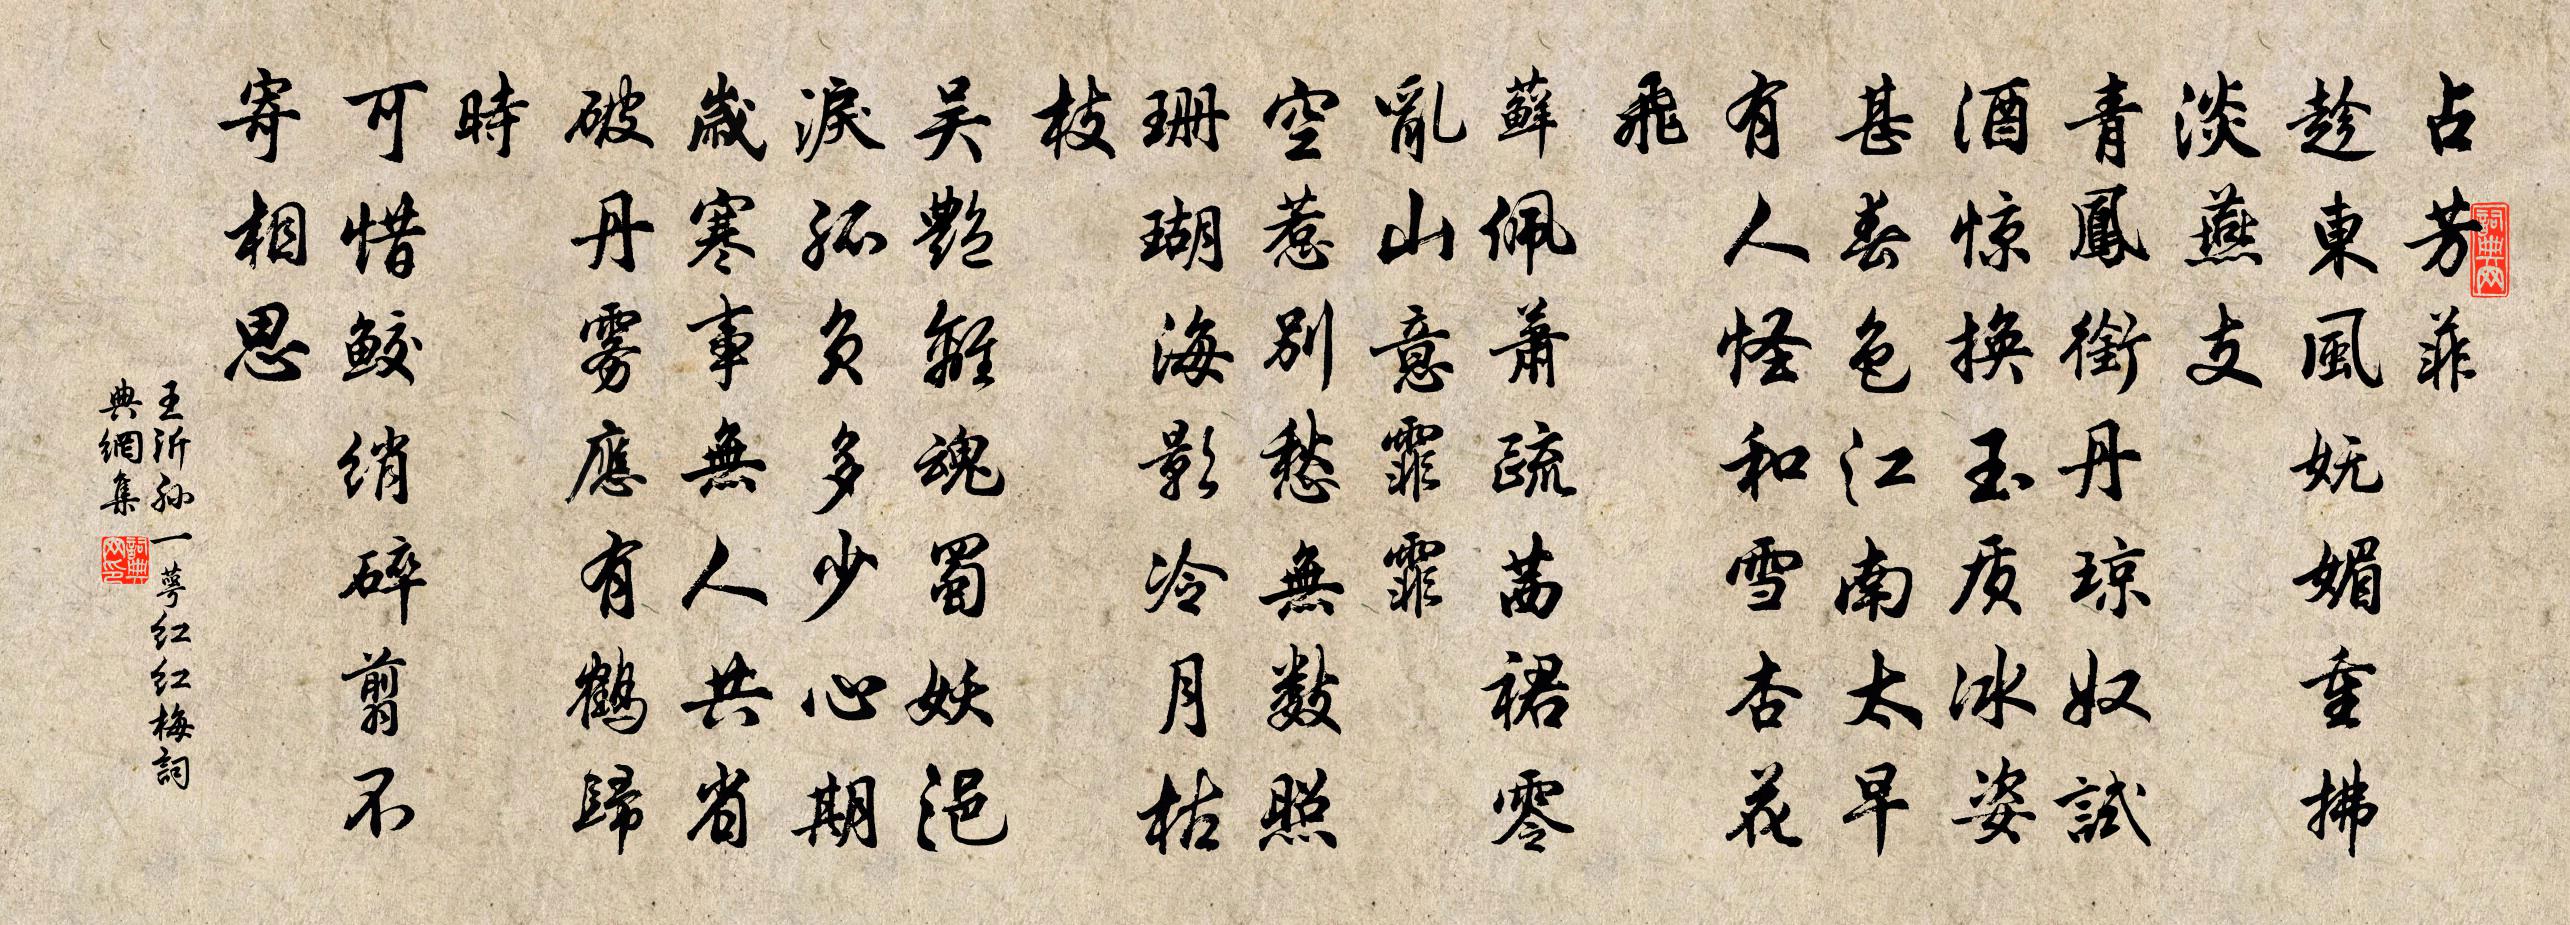 占芳菲
趁東風妩媚重拂
淡燕支
青鳳銜丹琼奴試
酒惊換玉质冰姿
甚春色江南太早
有人怪和雪杏花
飛
蘚佩萧疏茜裙零
亂山意霏霏
空惹别愁無数照
珊瑚海影冷月枯
枝
吴艷離魂蜀妖浥
淚孤负多少心期
歲寒事無人共省
破丹雾應有鶴歸
時
可惜鲛绡碎剪不
寄相思
王沂孙一萼红红梅詞
典網集
詞典网
詞典网印